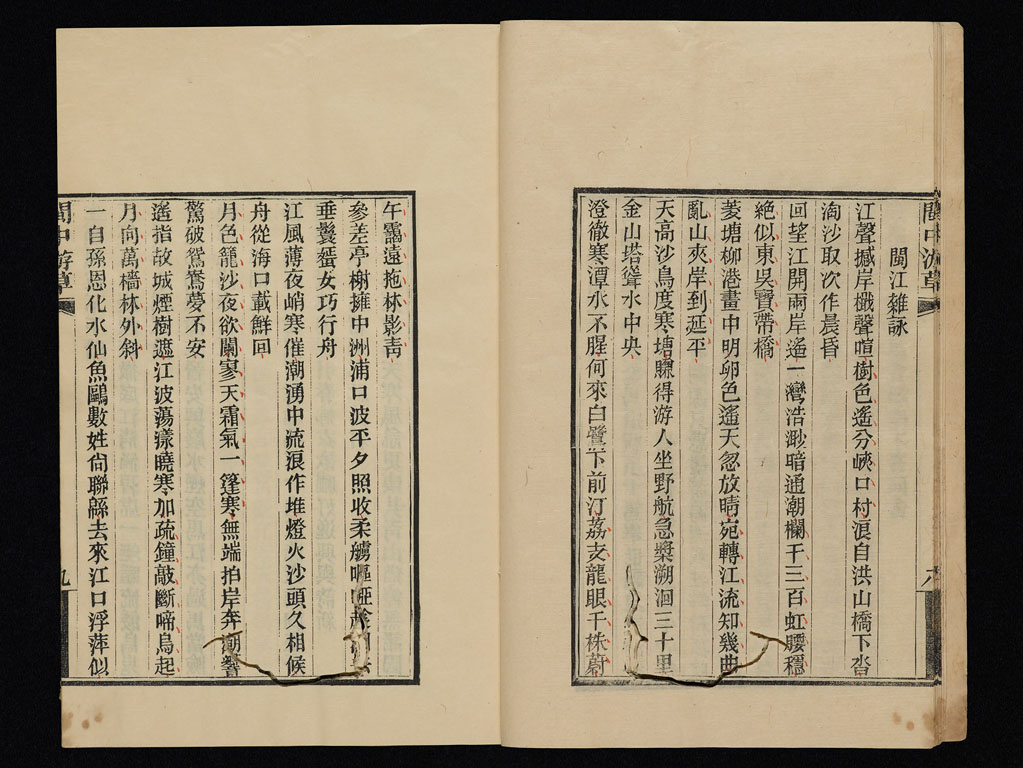 閩中游草
閩江雜詠
江聲撼岸櫓聲喧樹色遙分峽口村浪自洪山橋下沓
淘沙取次作晨昏
回望江開兩岸遙一灣浩渺暗通潮欄干三百虹腰穩
絶似東吳寶帶橋
菱塘柳港畫中明卵色遙天忽放晴宛轉江流知幾曲
亂山夾岸到延平
天高沙鳥度寒塘賺得游人坐野航急槳溯洄三十里
金山塔聳水中央
澄徹寒潭水不腥何來白鷺下前汀荔支龍眼千株蔚
八
午靄遠拖林影靑
參差亭榭擁中洲浦口波平夕照收柔艣嘔啞
垂鬟蜑女巧行舟
江風薄夜峭寒催潮湧中流浪作堆燈火沙頭久相候
舟從海口載鮮回
月色籠沙夜欲闌寥天霜氣一篷寒無端拍岸奔潮聲
驚破鴛鴦夢不安
遙指故城煙樹遮江波蕩漾曉寒加疏鐘敲斷啼烏起
月向萬檣林外斜
一自孫恩化水仙魚鷗數姓尙聯緜去來江口浮萍似
閩中游草
九